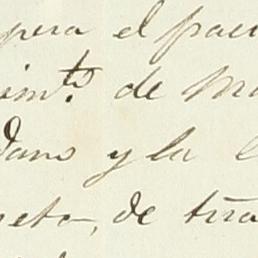 pera el pac
imto. de Ma
dano y la
eto, de tira